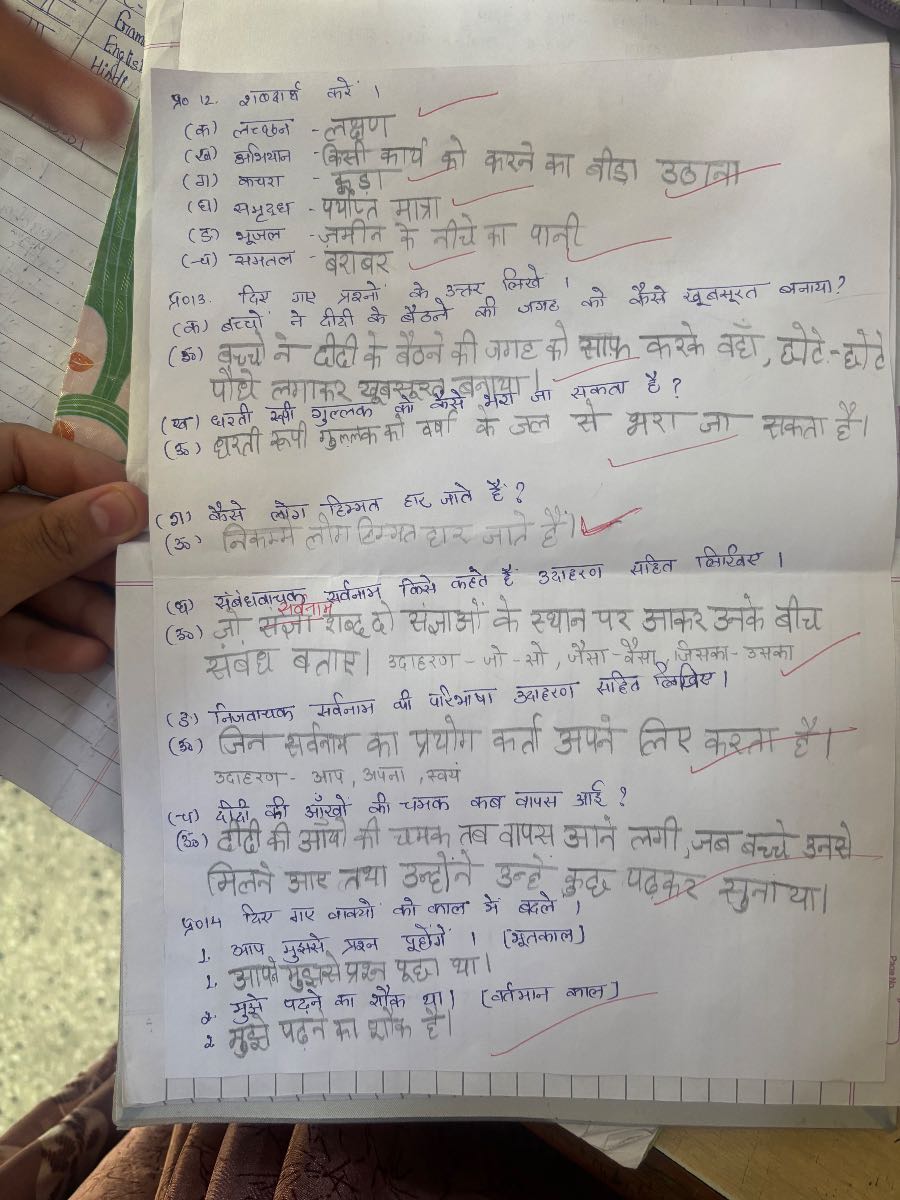 Gram
English
Hindi
प्र० 12. शब्दार्थ करें ।
(क) लच्छन - लक्षण
(ख) अभियान - किसी कार्य को करने का बीड़ा उठाना
(ग) कचरा - कूड़ा
(घ) समृद्ध - पर्याप्त मात्रा
(ङ) भूजल - ज़मीन के नीचे का पानी
(च) समतल - बराबर
प्र०13. दिए गए प्रश्नों के उत्तर लिखें ।
(क) बच्चों ने दीदी के बैठने की जगह को कैसे खूबसूरत बनाया?
(उ०) बच्चो ने दीदी के बैठने की जगह को साफ़ करके वहाँ, छोटे-छोटे
पौधे लगाकर खूबसूरत बनाया।
(ख) धरती रूपी गुल्लक को कैसे भरा जा सकता है ?
(उ०) धरती रूपी गुल्लक को वर्षा के जल से भरा जा सकता है।
(ग) कैसे लोग हिम्मत हार जाते हैं ?
(उ०) निकम्मे लोग हिम्मत हार जाते हैं।
(घ) संबंधवाचक सर्वनाम किसे कहते हैं उदाहरण सहित लिखिए ।
सर्वनाम
(उ०) जो संज्ञा शब्द दो संज्ञाओं के स्थान पर आकर उनके बीच
संबंध बताए। उदाहरण - जो - सो, जैसा - वैसा, जिसका - उसका
(ङ) निजवाचक सर्वनाम की परिभाषा उदाहरण सहित लिखिए ।
(उ०) जिन सर्वनाम का प्रयोग कर्ता अपने लिए करता है।
उदाहरण - आप, अपना, स्वयं
(च) दीदी की आँखों की चमक कब वापस आई ?
(उ०) दीदी की आँखो की चमक तब वापस आने लगी, जब बच्चे उनसे
मिलने आए तथा उन्होंने उन्हें कुछ पढ़कर सुनाया।
प्र०14 दिए गए वाक्यों को काल में बदलें ।
1. आप मुझसे प्रश्न पूछेंगे । [भूतकाल]
1. आपने मुझसे प्रश्न पूछा था।
2. मुझे पढ़ने का शौक था। [वर्तमान काल]
2 मुझे पढ़ने का शौक है।
Page No.